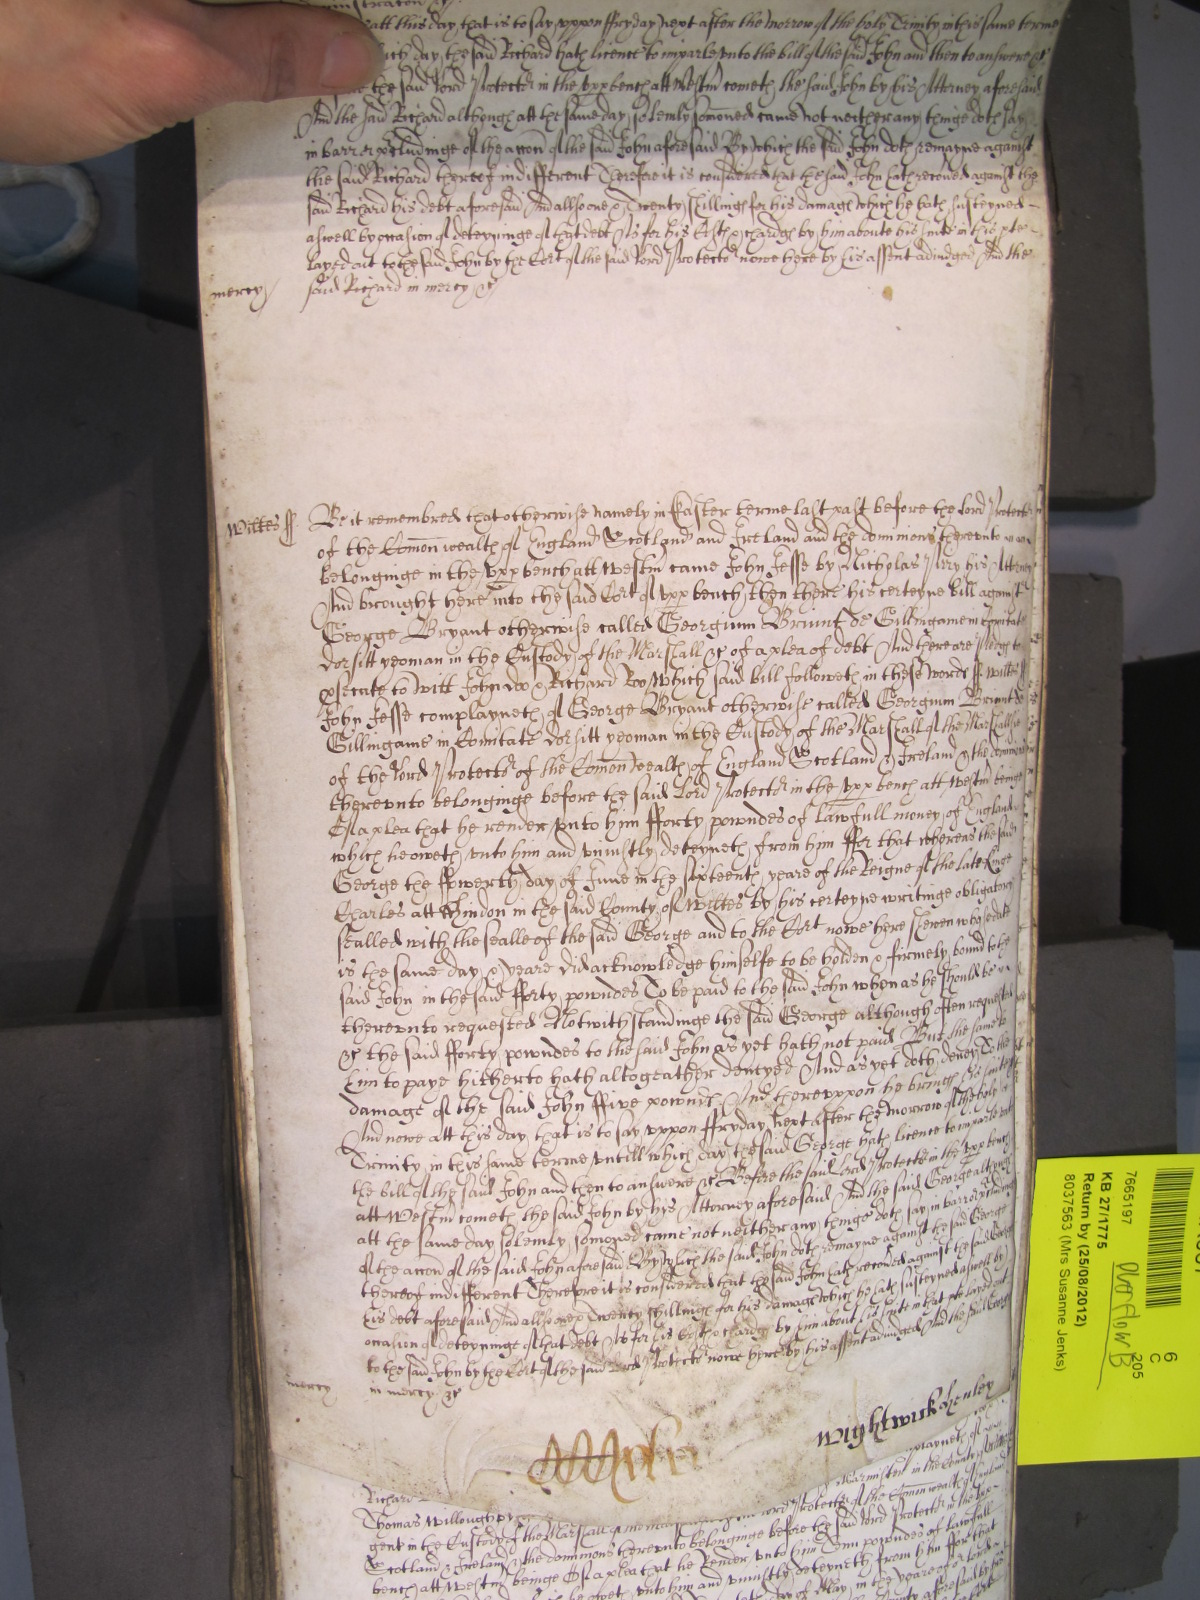 att this day that is to say uppon ffryday next after the morrow of the holy Trinity in this same terme
day the said Richard hath licence to imparle unto the bill of the said John and then to answere &c
the said Lord Protector in the upp bench att Westm cometh the said John by his Attorney aforesaid
And the said Richard although att the same day solemly somoned came not neither any thinge doth say
in barr or p̱cludinge of the accon of the said John aforesaid By which the said John doth remayne against
the said Richard thereof indifferent Therefore it is considered that the said John hath recoued against the
said Richard his debt aforesaid And allsoe one & Twenty shillings for his damages which he hath susteyned
aswell by occasion of deteyninge of that debt As for his Costs & chardges by him aboute his suite in this p̱te
layed out to the said John by the Cort of the said Lord Protector nowe here by his assent adiudged And the
mercy said Richard in mercy &c
Wiltes ss Be it remembred that otherwise namely in Easter terme last past before the Lord Protector
of the Comon wealth of England Scotland and Ireland and the dominions thereunto
belonginge in the upp bench att Westm came John Jesse by Nicholas his Attorney
And brought here into the said Cort of upp bench then there his certeyne bill against
George Bryant otherwise called Georgium Briunt de Gillingame in Comitate
dorsitt yeoman in the Custody of the Marshall &c of a plea of debt And there are pledges to
p̱secute to witt John doo & Richard Roo Which said bill followeth in these words ss Wiltes
John Jesse complayneth of George Bryant otherwise called Georgium Briunt de
Gillingame in Comitate dorsitt yeoman in the Custody of the Marshall of the Marshallsie
of the Lord Protector of the Comon wealth of England Scotland & Ireland & the dominions
thereunto belonginge before the said Lord Protector in the upp bench att Westm beinge
Of a plea that he render unto him fforty powndes of lawfull money of England
which he oweth unto him and uniustly deteyneth from him ffor that whereas the said
George the ffowerth day of June in the sixteenth yeare of the Reigne of the late Kinge
Charles att Hindon in the said County of Wiltes by his certeyne writinge obligatory
sealled with the sealle of the said George and to the Cort nowe here shewen whose date
is the same day & yeare did acknowledge himselfe to be holden & firmely bound to the
said John in the said fforty powndes To be paid to the said John when as he should be
thereunto requested Notwithstandinge the said George although often requested
&c the said fforty powndes to the said John as yet hath not paid But the same to
him to paye hitherto hath altogeather denyed And as yet doth deney To the
damage of the said John ffive pownds And thereuppon he bringeth his suite &c
And nowe att this day that is to say uppon ffryday next after the morrow of the holy
Trinity in this same terme untill which day the said George hath licence to imparle unto
the bill of the said John and then to answere &c Before the said Lord Protector in the upp bench
att Westm cometh the said John by his Attorney aforesaid And the said George although
att the same day solemly somoned came not neither any thinge doth say in barr or p̱cludinge
of the accon of the said John aforesaid By which the said John doth remayne against the said George
thereof indifferent Therefore it is considered that the said John hath recoued against the said George
his debt aforesaid And allsoe one & twenty shillings for his damages which he hath susteyned aswell by
occasion of deteyninge of that debt As for his Costs & chardges by him about his suite in that p̱te layed out
to the said John by the Cort of the said Lord Protector nowe here by his assent adiudged And the said George
mercy in mercy &c
Wightwick henley
Richard
Thomas Willoughby
gent in the Custody of the Marshall of the Lord Protector of the Comon wealth of England
Scotland & Ireland & the dominions thereunto belonginge before the said Lord Protector in the upp
bench att Westm beinge Of a plea that he Render unto him powndes of lawfull
unto him and uniustly deteyneth from him ffor that
day of May in the yeare of
7665197
KB 27/1775
Return by (25/08/2012)
8037563 (Mrs Susanne Jenks)
overflow B
6
C
205